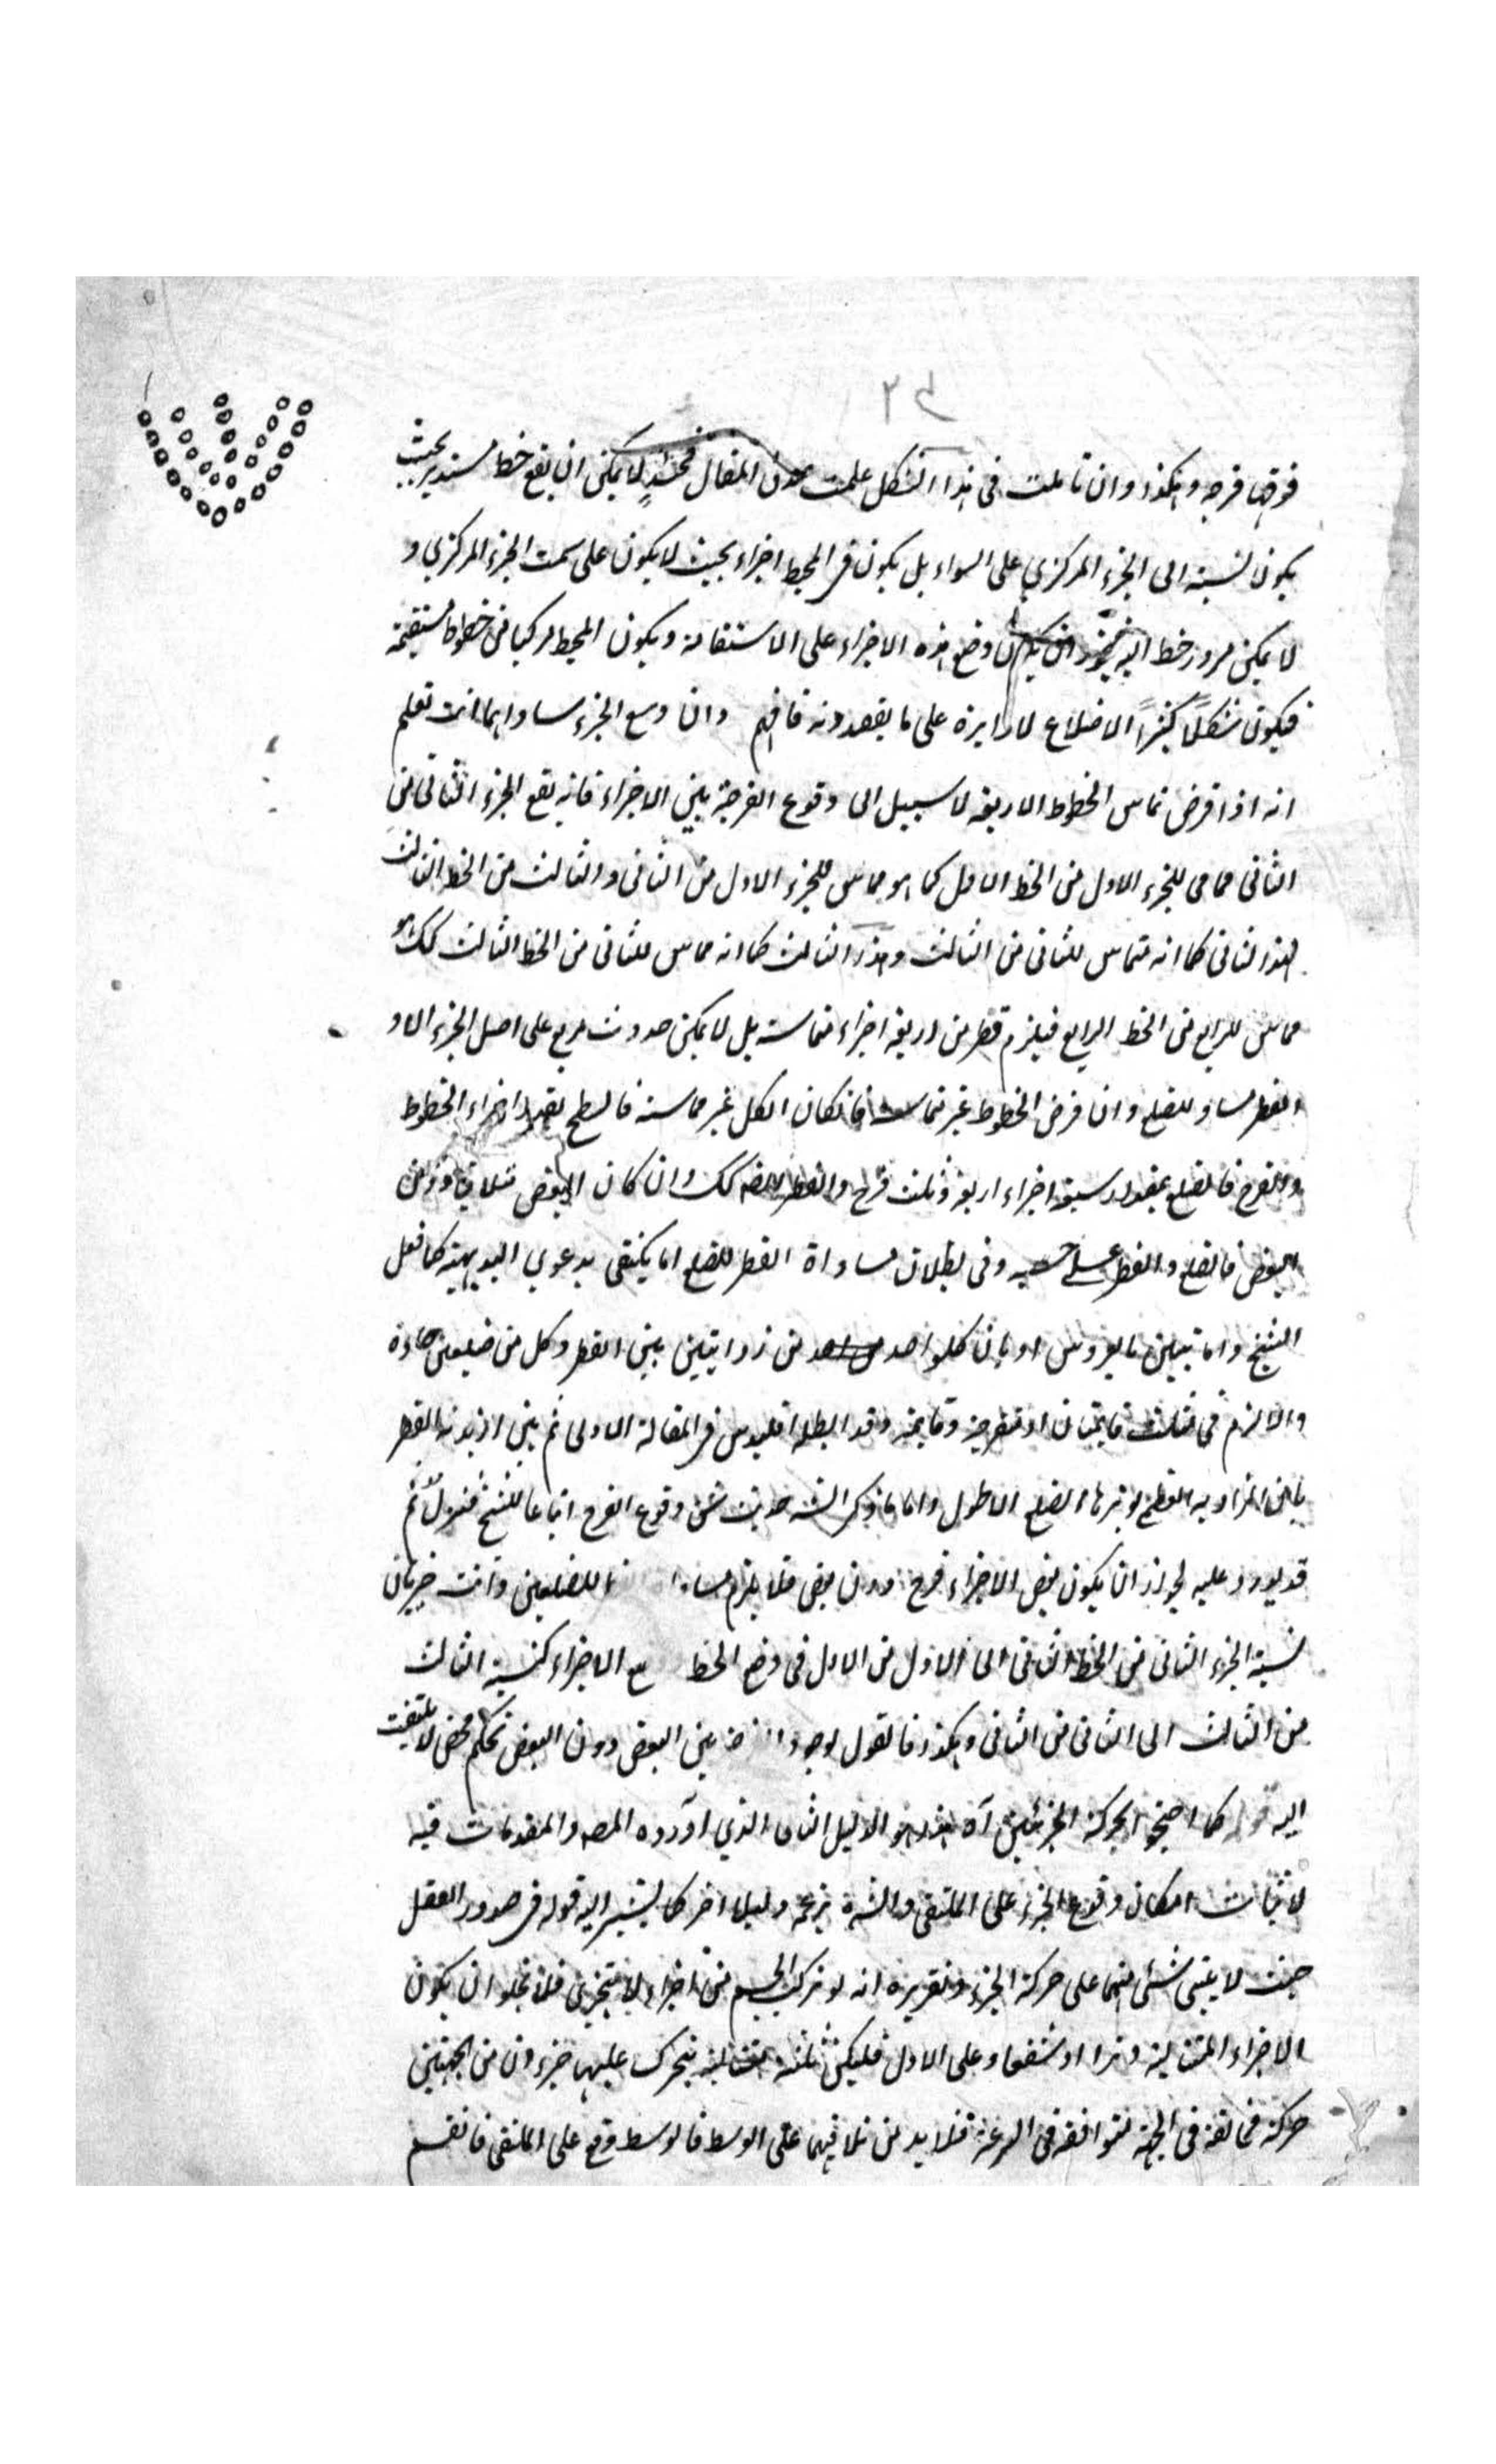 ٢٤
فوقها فرجه وهكذا وان تاملت فى هذا الشكل علمت صدق المقال فحينئذٍ لا يمكن ان يقع خط مستدير بحيث
يكون نسبته الى الجزء المركزي على السواء بل يكون فى المحيط اجزاء بحيث لا يكون على سمت الجزء المركزي و
لا يمكن مرور خط اليه وضع هذه الاجزاء على الاستقامة ويكون المحيط مركبا من خطوط مستقيمة
فيكون شكلاً كثيرَ الاضلاع لا دايرة على ما يقصدونه فافهم وان وسع الجزء مساواهما انت تعلم
انه اذا فرض تماس الخطوط الاربعة لا سبيل الى وقوع الفرجة بين الاجزاء فانه يقع الجزء الثانى من
الثانى مماس للجزء الاول من الخط الاول كما هو مماس للجزء الاول من الثانى والثالث من الخط الثالث
لهذا الثانى كما انه متماس للثانى من الثالث وهذا الثالث كما انه مماس للثانى من الخط الثالث كك هو
مماس للرابع من الخط الرابع فيلزم قطر من اربعة اجزاء متماسته بل لا يمكن حدوث مربع على اصل الجزء الا و
القطر مساو للضلع وان فرض الخطوط غير متماسة فان كان الكل غير مماسته فالسطح بقدر اجزاء الخطوط
والفرج فالضلع بمقدار سبعة اجزاء اربعة وثلث فرج والقطر كك وان كان البعض متلاقيا دون
البعض فالضلع والقطر على حسبه وفى بطلان مساواة القطر للضلع اما يكتفى بدعوي البديهية كما فعل
الشيخ واما تبيين بالعروس او بان كلواحد من زوايتين بين القطر وكل من ضلعين حادة
والا لزم فى مثلث قايمتان او منفرجة وقايمة وقد ابطله اقليدس فى المقالة الاولى ثم بين ازيدية القطر
بان الزاوية العظمى يوترها الضلع الاطول واما ما ذكر الشه حديث شق وقوع الفرج اتباعا للشيخ فنزل ثم
قد يورد عليه لجواز ان يكون بعض الاجزاء فرج دون بعض فلا يلزم للضلعين وانت خبر بان
نسبة الجزء الثانى من الخط الثانى الى الاول من الاول فى وضع الخط مع الاجزاء كنسبة الثالث
من الثالث الى الثانى من الثانى وهكذا فالقول بوجود بين البعض دون البعض تحكم محض لا يلتفت
اليه قوله كما احتجوا بحركة الجزئين آه هذا هو الدليل الثانى الذي اورده المصه والمقدمات فيه
لاثبات امكان وقوع الجزء على الملتقى والشه زعمه دليلا اخر كما يشير اليه قوله فى صدور العقل
حيث لا يبتنى شئ منهما على حركة الجزء وتقريره انه لو تركب الجسم من اجزاء لا يتجزى فلا يخلو ان يكون
الاجزاء المتتالية وترا او شفعا وعلى الاول فليكن ثلثة متتالية يتحرك عليها جزءان من الجهتين
حركة مخالفة فى الجهة متوافقه فى السرعة فلا بد من تلاقيهما على الوسط فالوسط وقع على الملتقى فانقسم